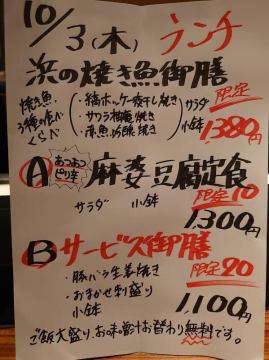 10/3(木) ランチ
浜の焼き魚御膳 限定
焼き魚 3種の食べくらべ
・縞ホッケ一夜干し焼き
・サワラ柚庵焼き
・赤魚吟醸焼き
サラダ
小鉢
1,380円
A あつあつピリ辛 麻婆豆腐定食
サラダ 小鉢 限定10
1,300円
B サービス御膳
限定20
・豚バラ生姜焼き
・おまかせ刺し盛り
小鉢
1,100円
ご飯大盛り、お味噌汁お替わり無料です。